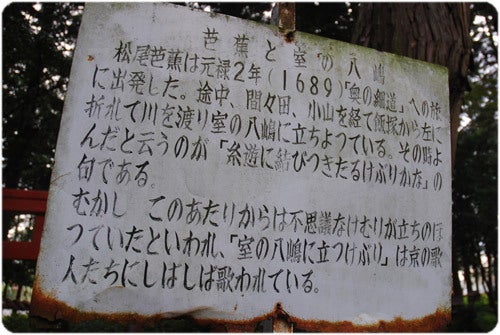 芭蕉と室の八嶋
松尾芭蕉は元禄2年(1689)「奥の細道」への旅
に出発した。途中、間々田、小山を経て飯塚から左に
折れて川を渡り室の八嶋に立ちよつている。その時よ
んだと云うのが「糸遊に結びつきたるけぶりかな」の
句である。
むかし このあたりからは不思議なけむりが立ちのぼ
つていたといわれ、「室の八嶋に立つけぶり」は京の歌
人たちにしばしば歌われている。